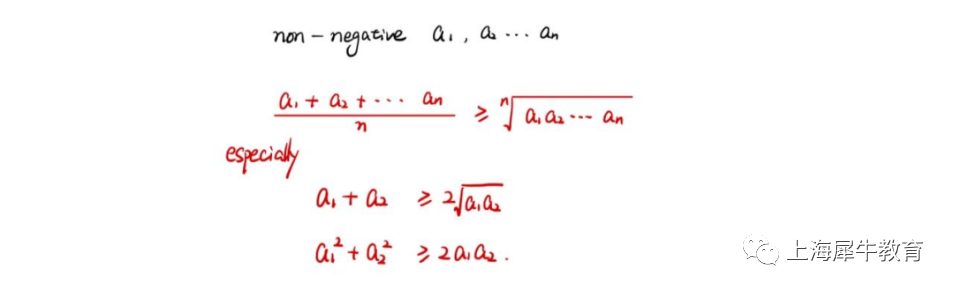 non-negative a₁, a₂ ⋯ aₙ
(a₁ + a₂ + ⋯ aₙ)/n ≥ ⁿ√(a₁a₂ ⋯ aₙ)
especially
a₁ + a₂ ≥ 2√(a₁a₂)
a₁² + a₂² ≥ 2a₁a₂.
上海犀牛教育